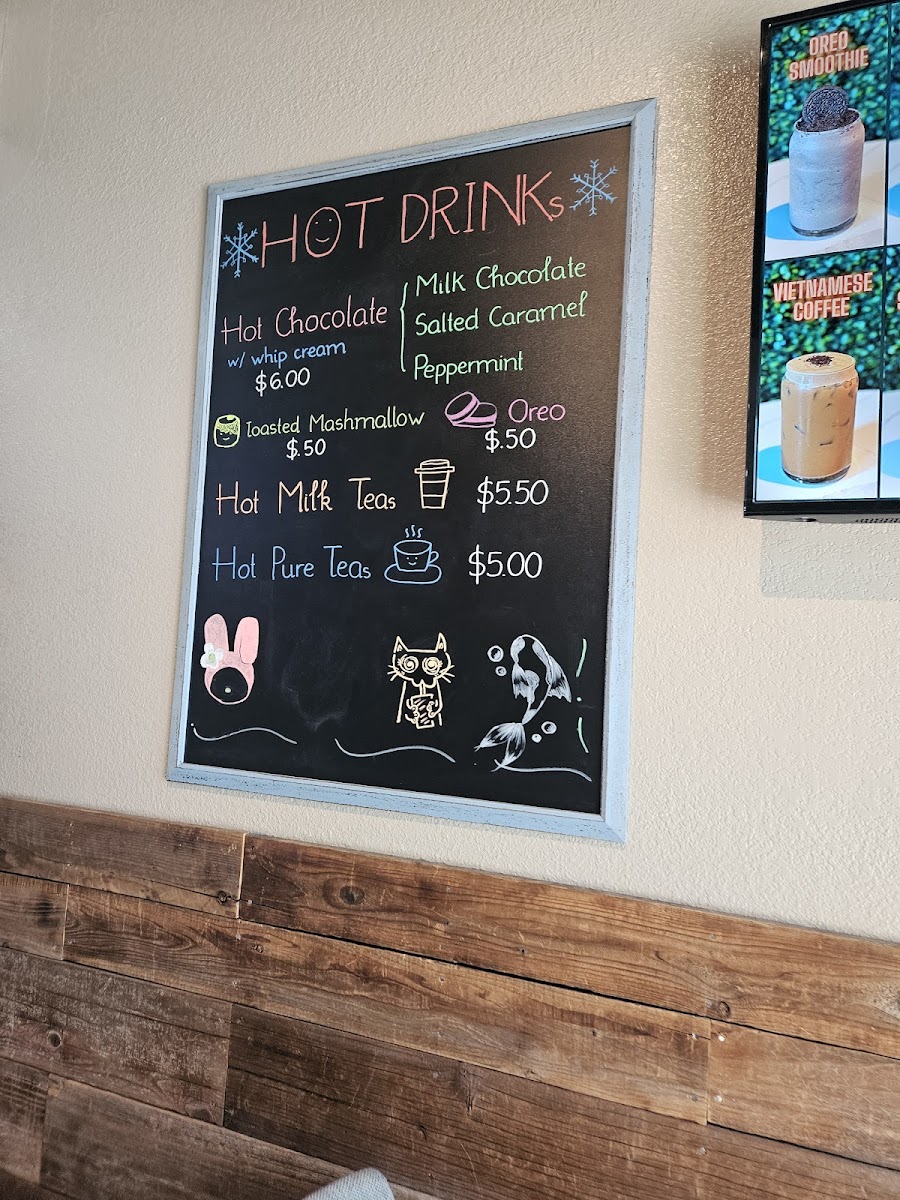 HOT DRINKs
Hot Chocolate
w/ whip cream
$6.00
Milk Chocolate
Salted Caramel
Peppermint
Toasted Mashmallow
$.50
Oreo
$.50
Hot Milk Teas $5.50
Hot Pure Teas $5.00
OREO
SMOOTHIE
VIETNAMESE
COFFEE